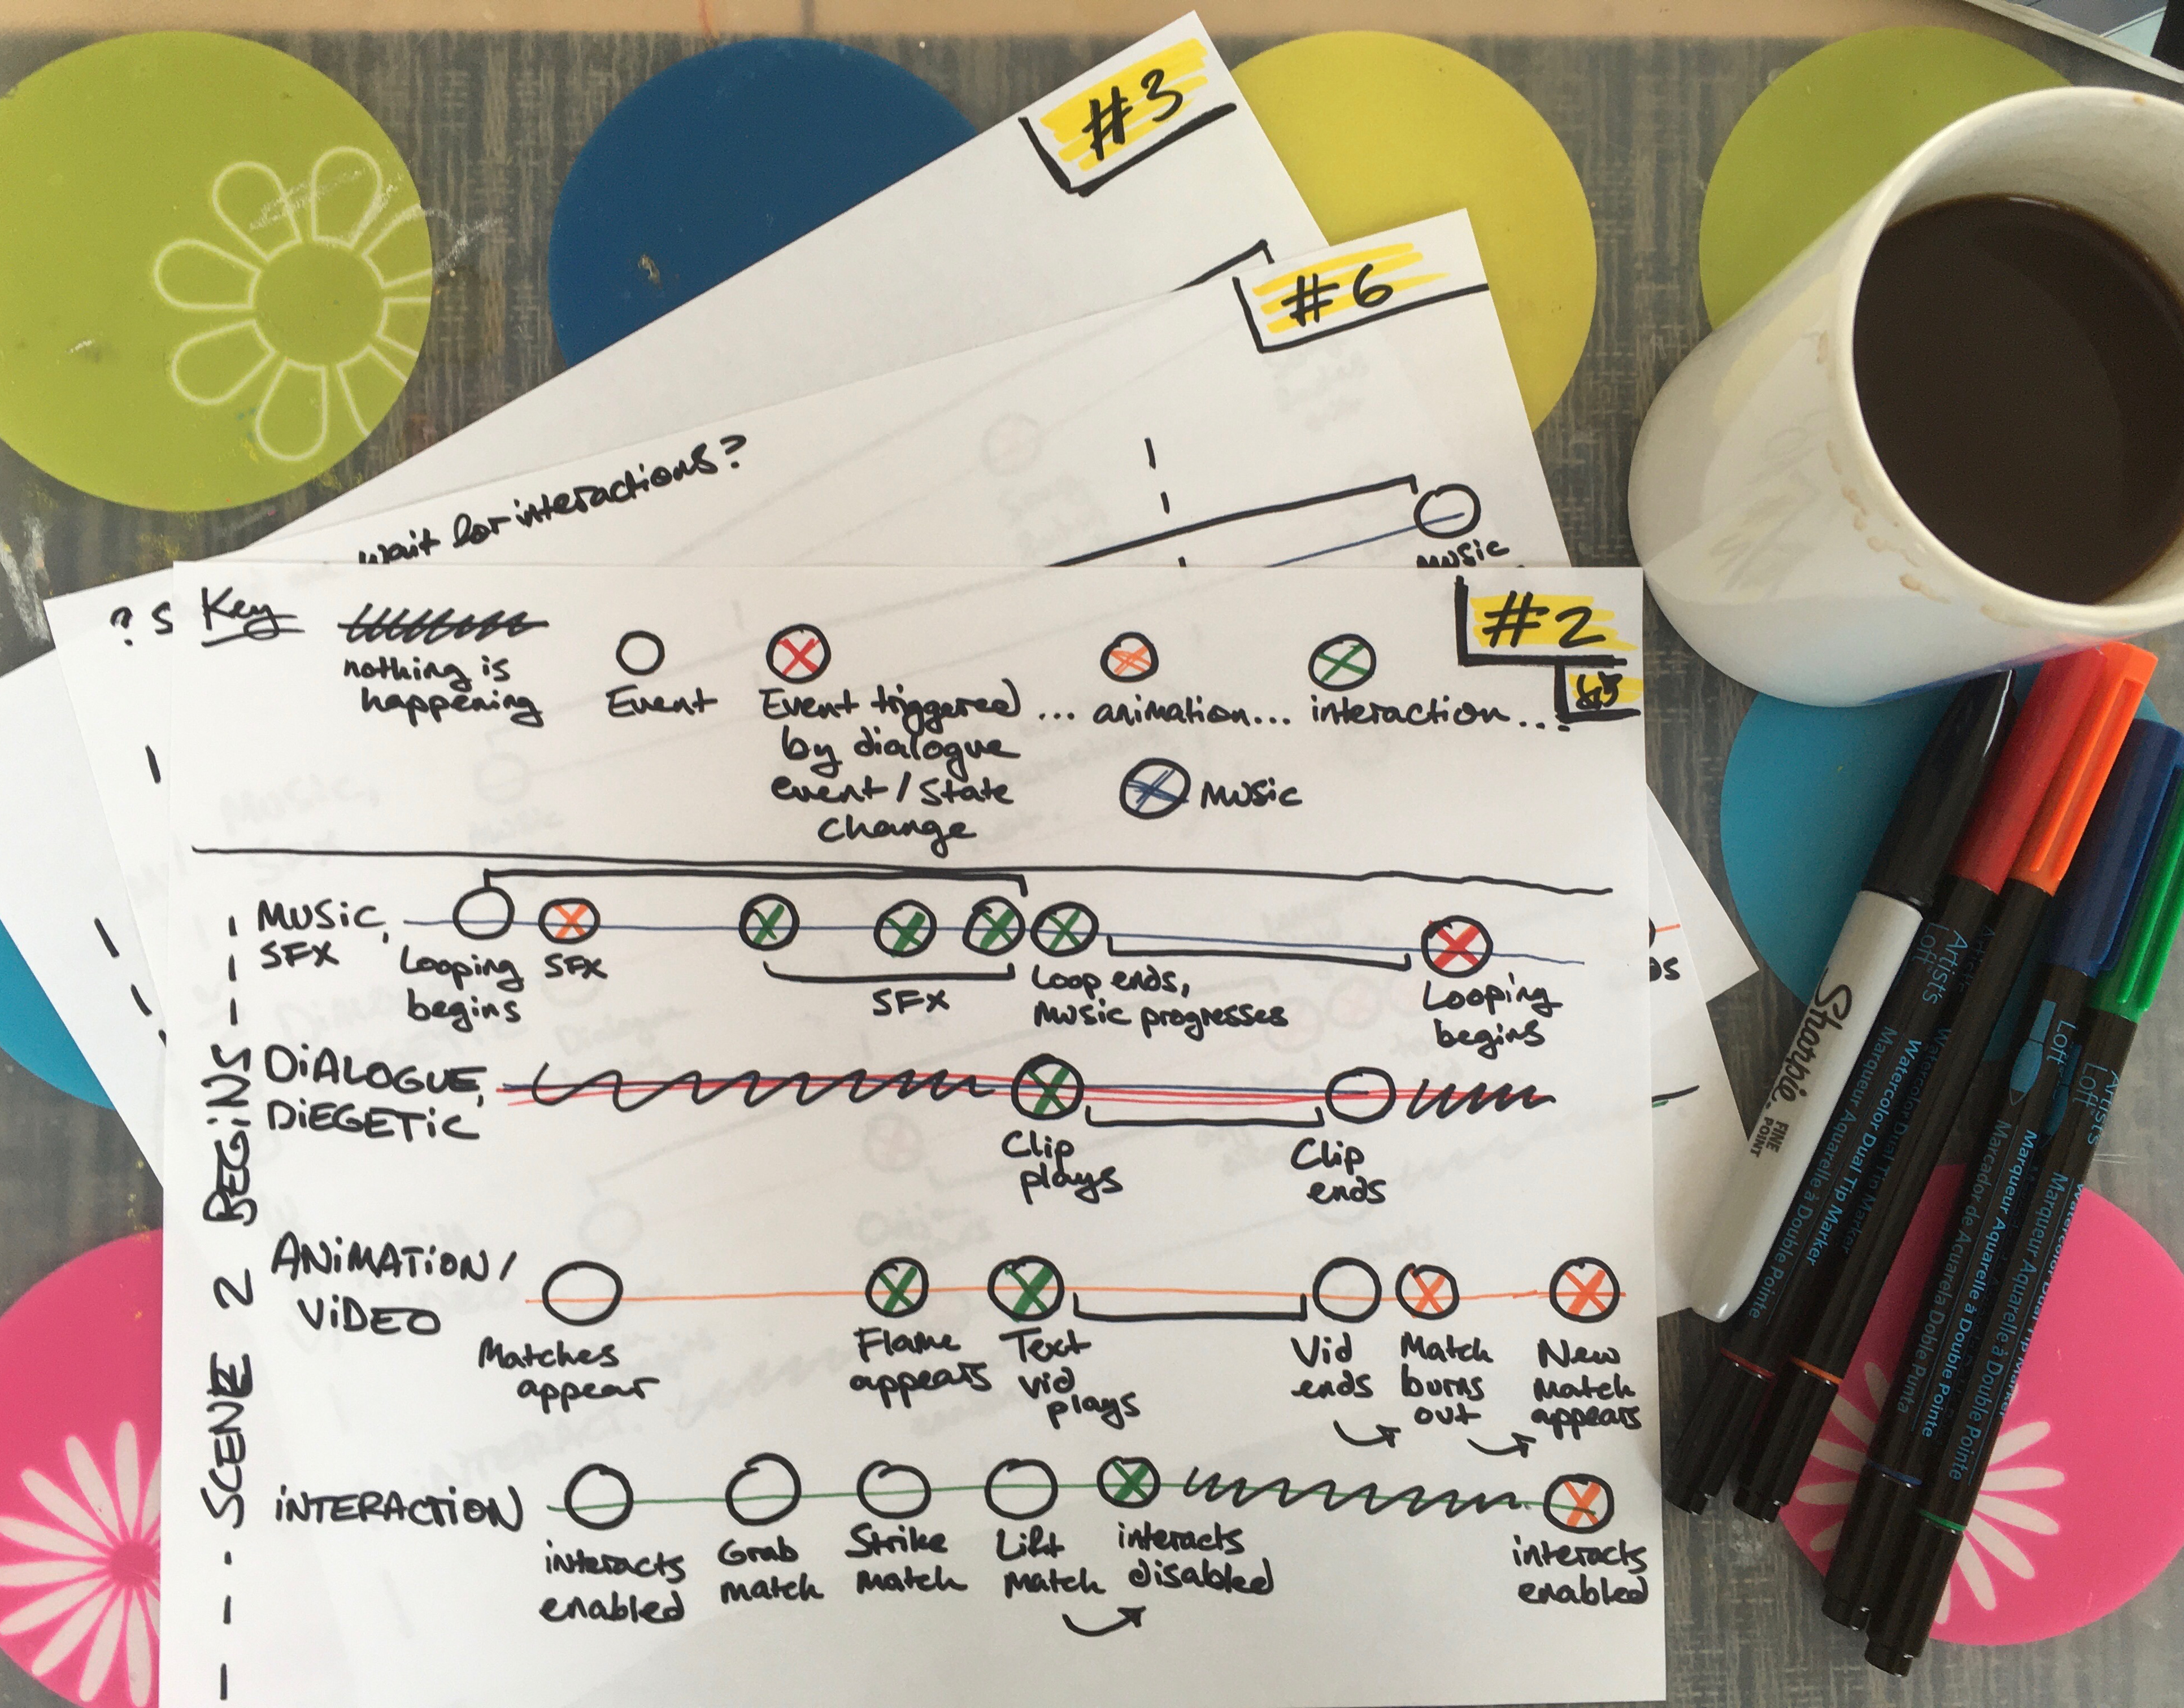 #3
#6
wait for interactions?
Music
? S
Key
#2
nothing is
happening
Event
Event triggered
by dialogue
event / State
change
... animation...
interaction...
Music
MUSIC,
SFX
Looping
begins
SFX
SFX
Loop ends,
Music progresses
Looping
begins
DIALOGUE,
DIEGETIC
Clip
plays
Clip
ends
SCENE 2 BEGINS
ANIMATION/
VIDEO
Matches
appear
Flame
appears
Text
vid
plays
Vid
ends
Match
burns
out
New
Match
appears
INTERACTION
interacts
enabled
Grab
match
Strike
Match
Lift
Match
interacts
disabled
interacts
enabled
Sharpie
FINE
POINT
Artist's
Loft
Watercolor Dual Tip Marker
Marqueur Aquarelle à Double Pointe
Artist's
Loft
Marqueur Aquarelle à Double Pointe
Marcador de Acuarela Doble Punta